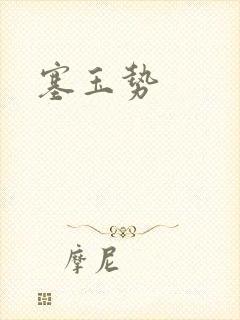 塞玉势
摩尼